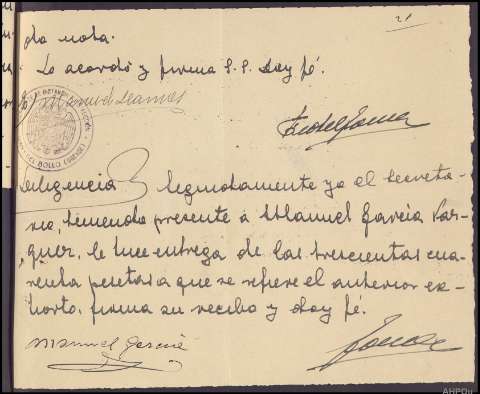 21
da nota.
Lo acordó y firma S.S. doy fé.
Manuel
Diligencia Seguidamente yo el Secreta-
rio, teniendo presente a Manuel García Vaz-
quez, le hice entrega de las trescientas cua-
renta pesetas a que se refiere el anterior ex-
horto, firma su recibo y doy fé.
Manuel García
AHPOu